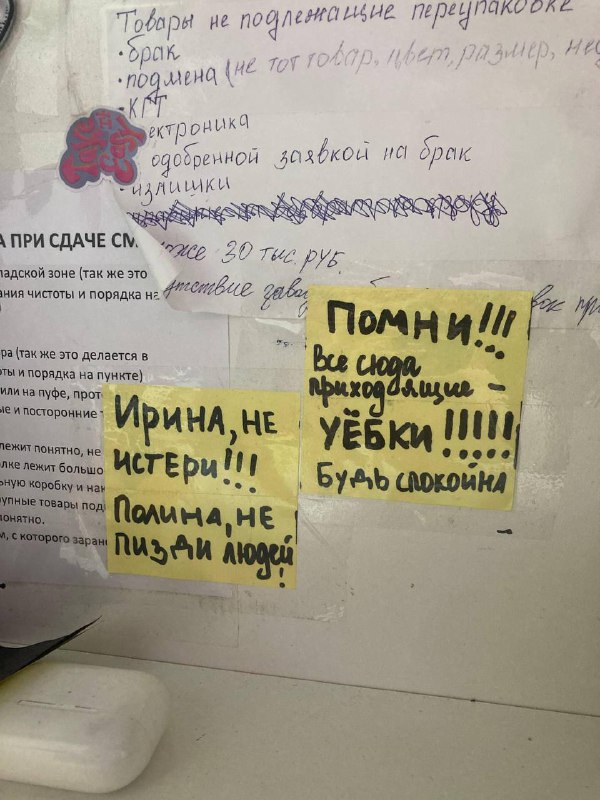 Товары не подлежащие переупаковке
• брак
• подмена (не тот товар, цвет, размер,
• КГТ
ектроника
одобренной заявкой на брак
• излишки
же 30 тыс. руб.
А ПРИ СДАЧЕ СМ
ладской зоне (так же это
ания чистоты и порядка на
ра (так же это делается в
оты и порядка на пункте)
или на пуфе, прот
ые и посторонние
лежит понятно, не
олке лежит большо
ьную коробку и нак
рупные товары под
понятно.
м, с которого заран
Помни!!!
Все сюда
приходящие –
УЁБКИ!!!!!
Будь спокойна
Ирина, не
истери!!!
Полина, не
пизди людей!